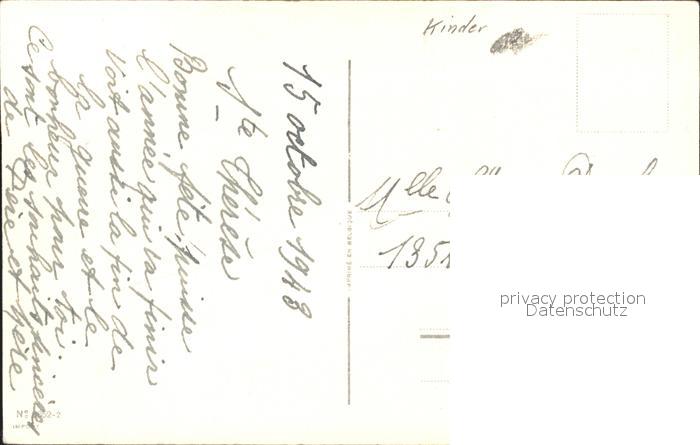 15 octobre 1943
Ste Thérèse
Bonne fête, puisse
l'année qui va finir
voit aussi la fin de
la guerre et le
bonheur pour toi.
Ce sont les souhaits sincères
de Père et Mère
Kinder
Mlle
135
IMPRIMÉ EN BELGIQUE
privacy protection
Datenschutz